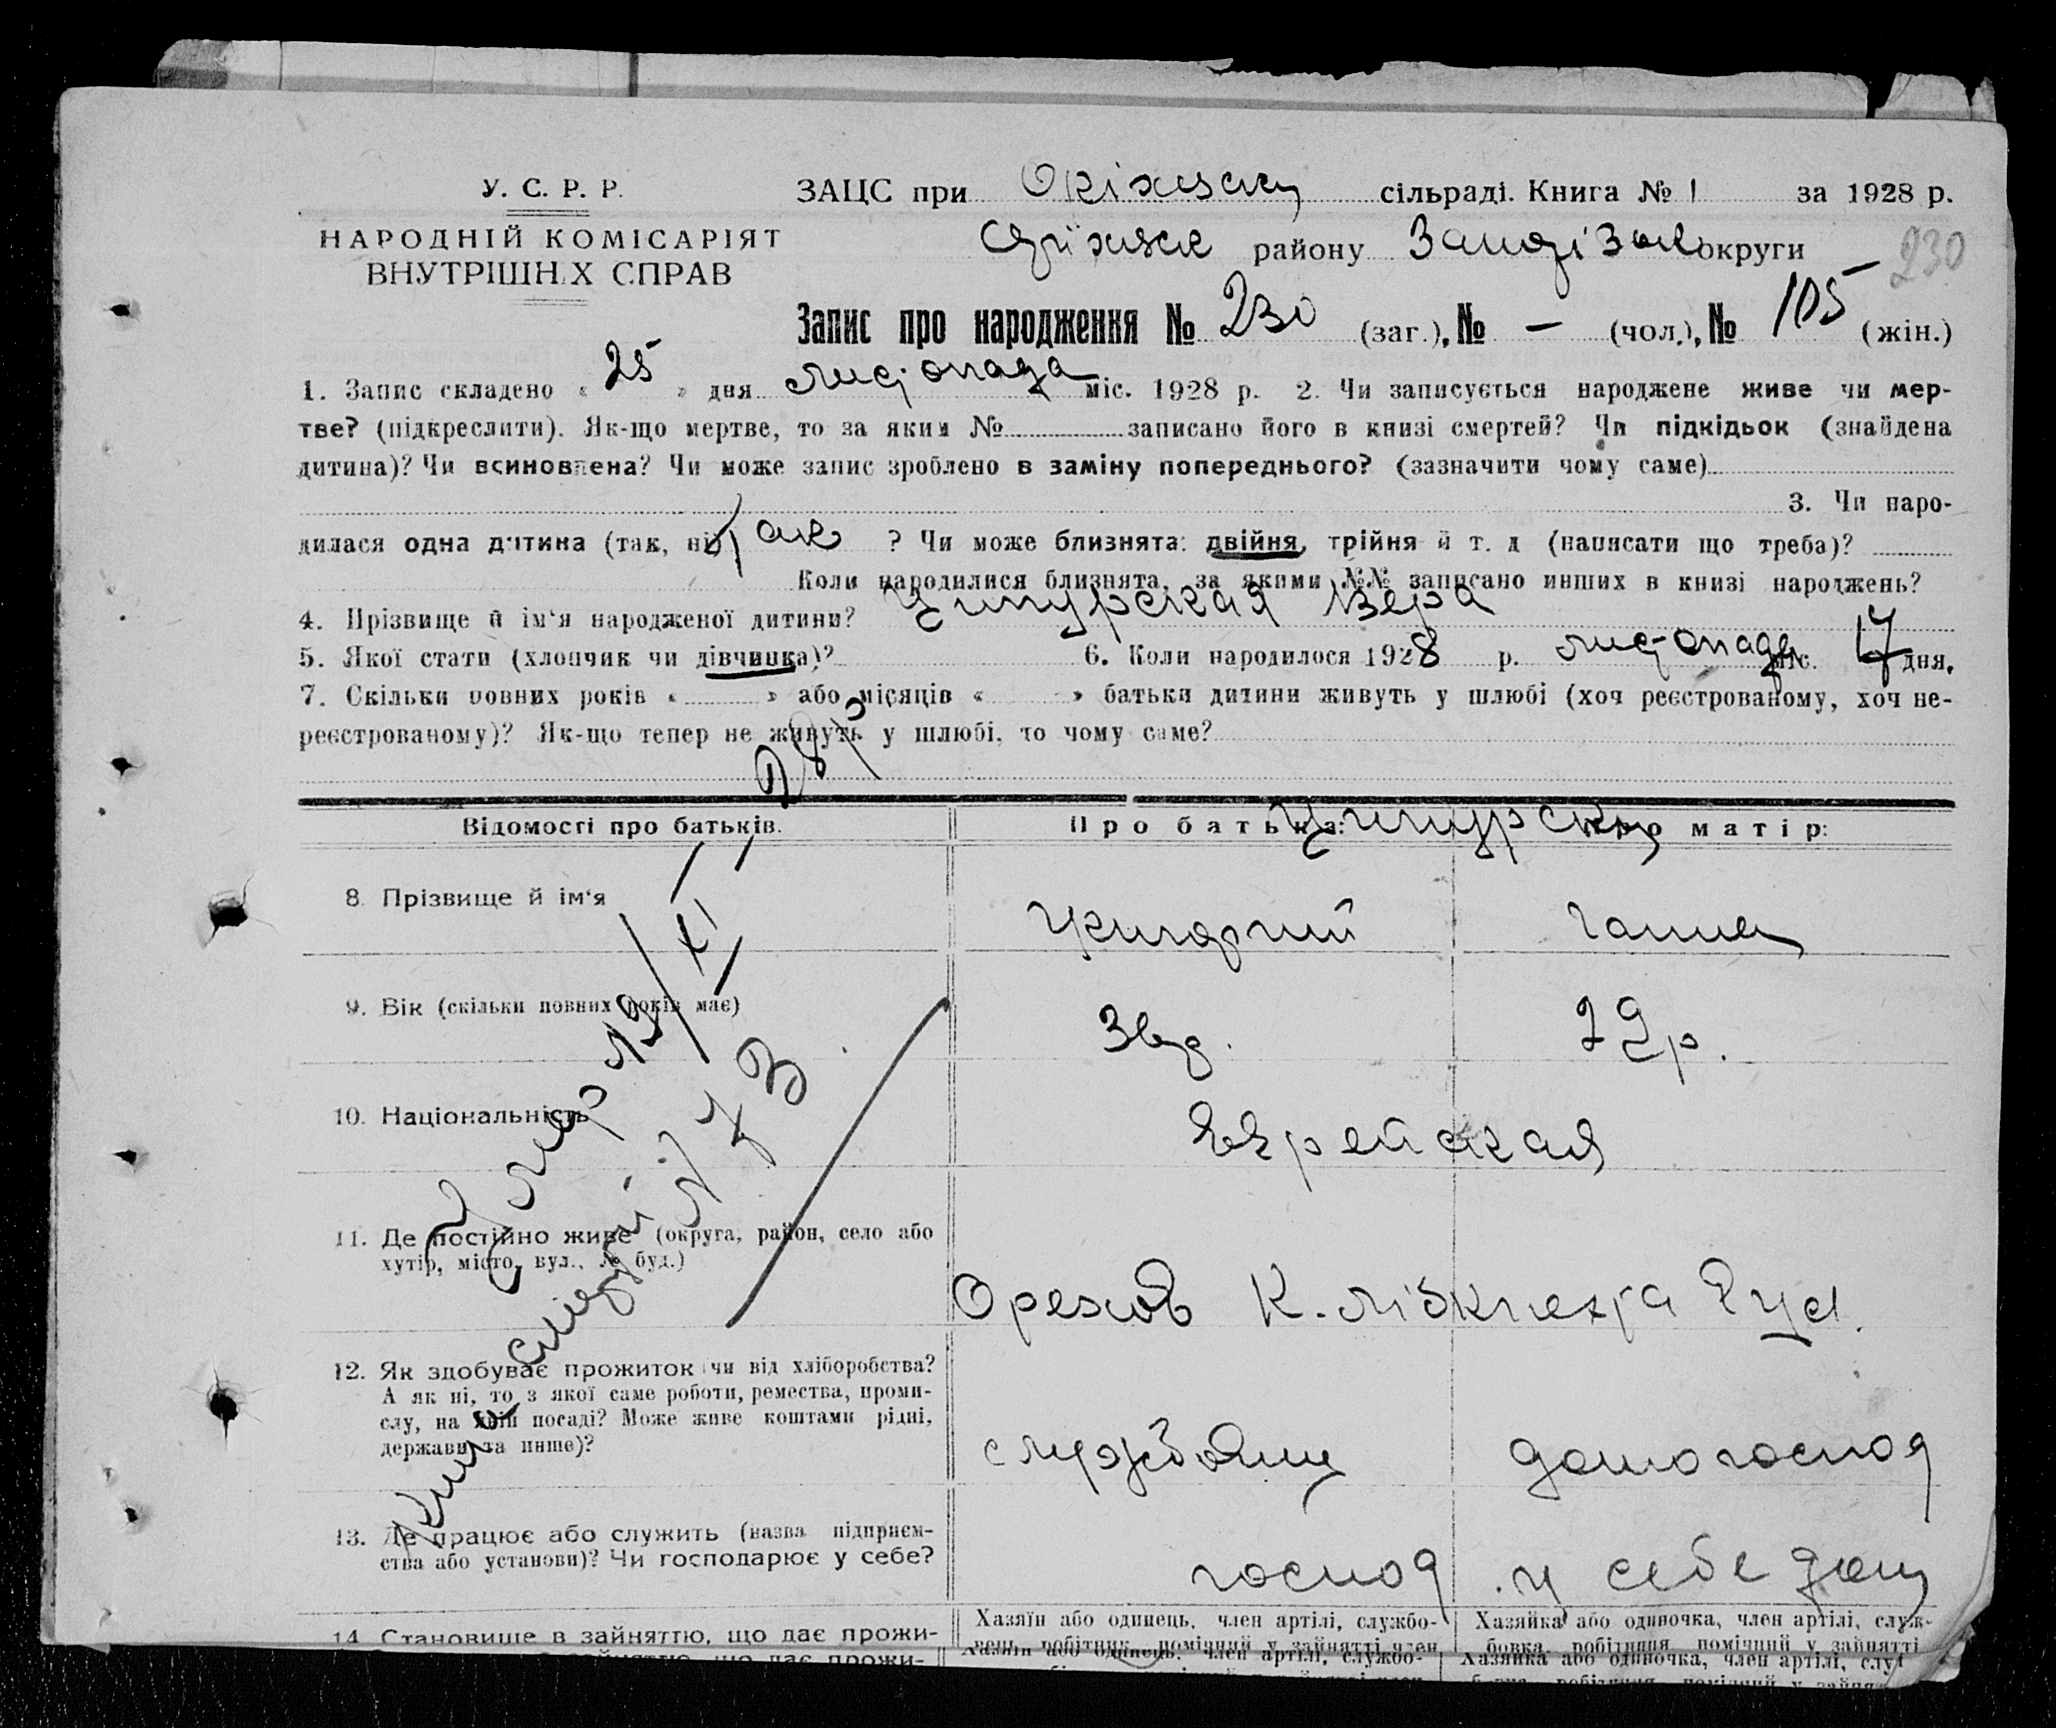 У. С. Р. Р.
НАРОДНІЙ КОМІСАРІЯТ
ВНУТРІШНІХ СПРАВ
ЗАЦС при сільраді. Книга № 1 за 1928 р.
району округи
230
Запис про народження № 230 (заг.), № — (чол.), № 105 (жін.)
1. Запис складено « 25 » дня листопада міс. 1928 р. 2. Чи записується народжене живе чи мер-
тве? (підкреслити). Як-що мертве, то за яким № записано його в книзі смертей? Чи підкідьок (знайдена
дитина)? Чи всиновлена? Чи може запис зроблено в заміну попереднього? (зазначити чому саме)
3. Чи наро-
дилася одна дитина (так, ні) так ? Чи може близнята: двійня, трійня й т. д (написати що треба)?
Коли народилися близнята, за якими №№ записано инших в книзі народжень?
4. Прізвище й ім'я народженої дитини? Ципурская Вера
5. Якої стати (хлопчик чи дівчинка)? 6. Коли народилося 1928 р. листопада міс. 17 дня.
7. Скільки повних років « » або місяців « » батьки дитини живуть у шлюбі (хоч реєстрованому, хоч не-
реєстрованому)? Як-що тепер не живуть у шлюбі, то чому саме?
Відомості про батьків. Про батька: Про матір:
8. Прізвище й ім'я Ганна
9. Вік (скільки повних років має) 29р.
10. Національність Еврейская
11. Де постійно живе (округа, район, село або
хутір, місто, вул., № буд.)
Орехов К. Лібкнехта
12. Як здобуває прожиток чи від хліборобства?
А як ні, то з якої саме роботи, ремества, проми-
слу, на якій посаді? Може живе коштами рідні,
держави та инше)?
домогоспод
13. Де працює або служить (назва підприєм-
ства або установи)? Чи господарює у себе?
господ у себе
14. Становище в зайняттю, що дає прожи-
Хазяїн або одинець, член артілі, службо-
вець, робітник, помічний у зайнятті член
Хазяйка або одиночка, член артілі, служ-
бовка, робітниця, помічний у зайнятті